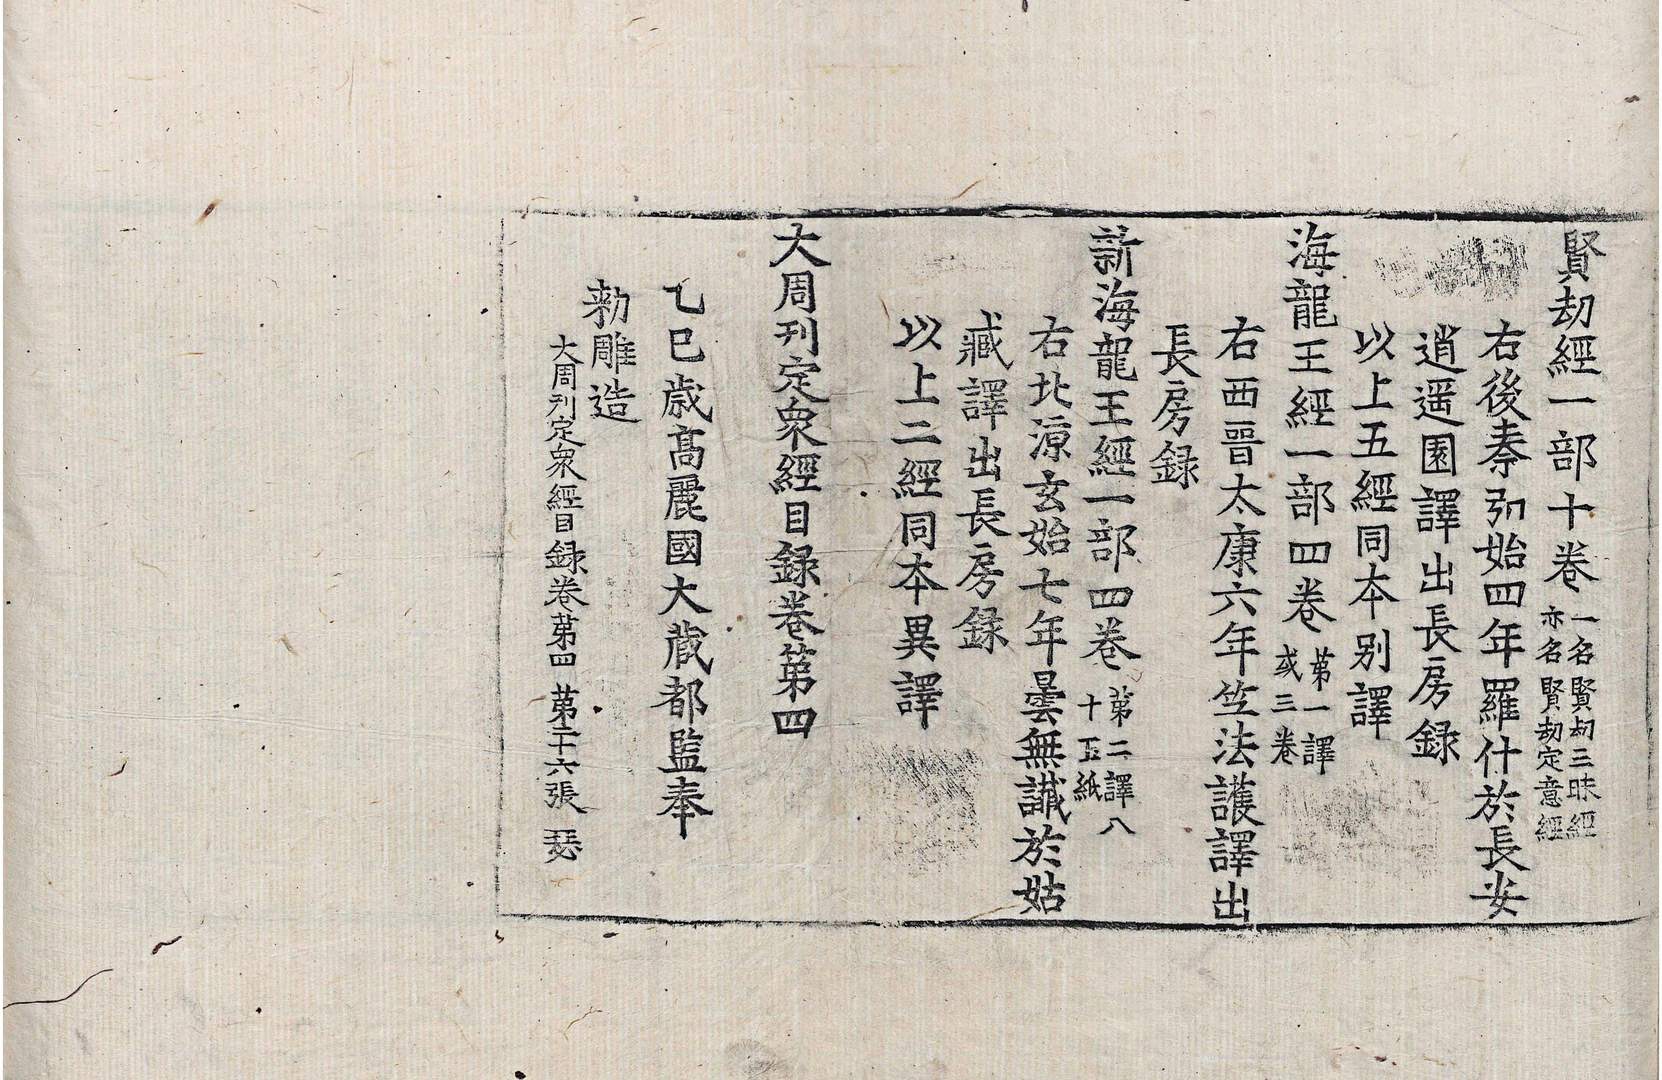 賢劫經一部十卷 一名賢劫三昧經 亦名賢劫定意經
右後秦弘始四年羅什於長安
逍遥園譯出長房録
以上五經同本别譯
海龍王經一部四卷 第一譯 或三卷
右西晉太康六年竺法護譯出
長房録
新海龍王經一部四卷 第二譯八十五紙
右北涼玄始七年曇無讖於姑
臧譯出長房録
以上二經同本異譯
大周刊定衆經目録卷第四
乙巳歳髙麗國大蔵都監奉
勑雕造
大周刊定衆經目録卷第四 第二十六張 瑟